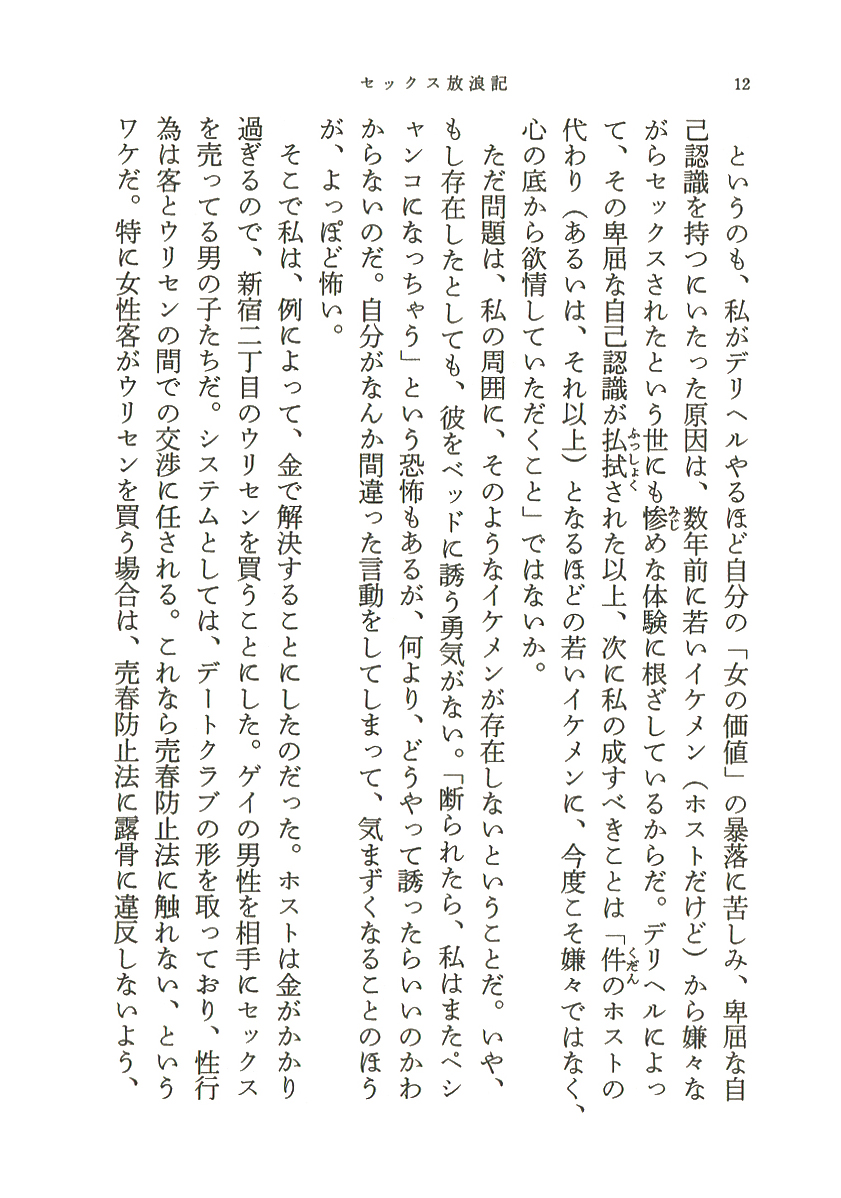 セックス放浪記
12
というのも、私がデリヘルやるほど自分の「女の価値」の暴落に苦しみ、卑屈な自
己認識を持つにいたった原因は、数年前に若いイケメン（ホストだけど）から嫌々な
がらセックスされたという世にも惨めな体験に根ざしているからだ。デリヘルによっ
て、その卑屈な自己認識が払拭された以上、次に私の成すべきことは「件のホストの
代わり（あるいは、それ以上）となるほどの若いイケメンに、今度こそ嫌々ではなく、
心の底から欲情していただくこと」ではないか。
ただ問題は、私の周囲に、そのようなイケメンが存在しないということだ。いや、
もし存在したとしても、彼をベッドに誘う勇気がない。「断られたら、私はまたペシ
ャンコになっちゃう」という恐怖もあるが、何より、どうやって誘ったらいいのかわ
からないのだ。自分がなんか間違った言動をしてしまって、気まずくなることのほう
が、よっぽど怖い。
そこで私は、例によって、金で解決することにしたのだった。ホストは金がかかり
過ぎるので、新宿二丁目のウリセンを買うことにした。ゲイの男性を相手にセックス
を売ってる男の子たちだ。システムとしては、デートクラブの形を取っており、性行
為は客とウリセンの間での交渉に任される。これなら売春防止法に触れない、という
ワケだ。特に女性客がウリセンを買う場合は、売春防止法に露骨に違反しないよう、
ふっしょく
みじ
くだん